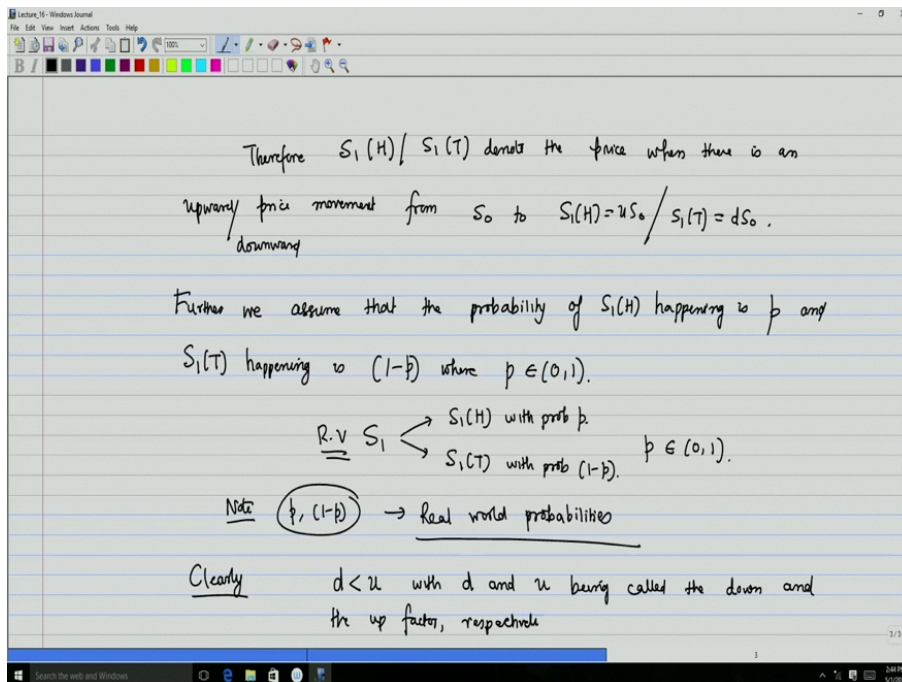 Lecture_16 - Windows Journal
File Edit View Insert Actions Tools Help
100%
B I
Therefore S₁(H) / S₁(T) denots the price when there is an
upward/ price movement from S₀ to S₁(H) = uS₀ / S₁(T) = dS₀.
downward
Further we assume that the probability of S₁(H) happening is p and
S₁(T) happening is (1-p) where p ∈ (0,1).
S₁(H) with prob p.
R.V S₁ p ∈ (0,1).
S₁(T) with prob (1-p).
Note p, (1-p) → Real world probabilities
Clearly d < u with d and u being called the down and
the up factor, respectively
3/3
3
Search the web and Windows
2:44 PM